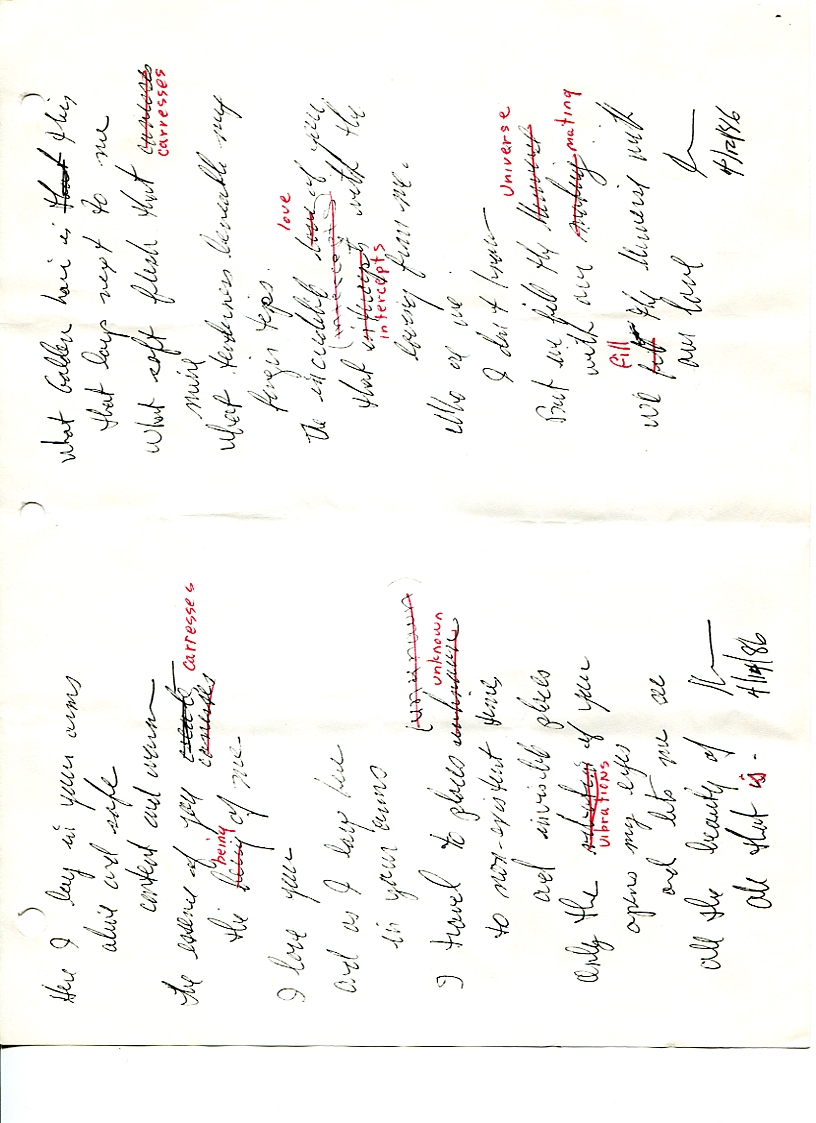 Here I lay in your arms
alive and safe
content and warm
carresses
the essence of you caresses
being
the being of me
I love you
and as I lay here
in your arms
(unknown)
unknown
I travel to places unknown
to non-existent times
and invisible places
only the of you
vibrations
opens my eyes
and lets me see
all the beauty of
all that is.
4/14/86
what Golden hair is that this
that lays next to me
what soft flesh that caresses
carresses
mine
what tenderness beneath my
finger tips.
love
the incredible love of you.
that with the
intercepts
loving from me.
Who are we
I don't know
Universe
But we fill the Universe
with our mating mating
fill
we fill the Universe with
our love
4/12/86